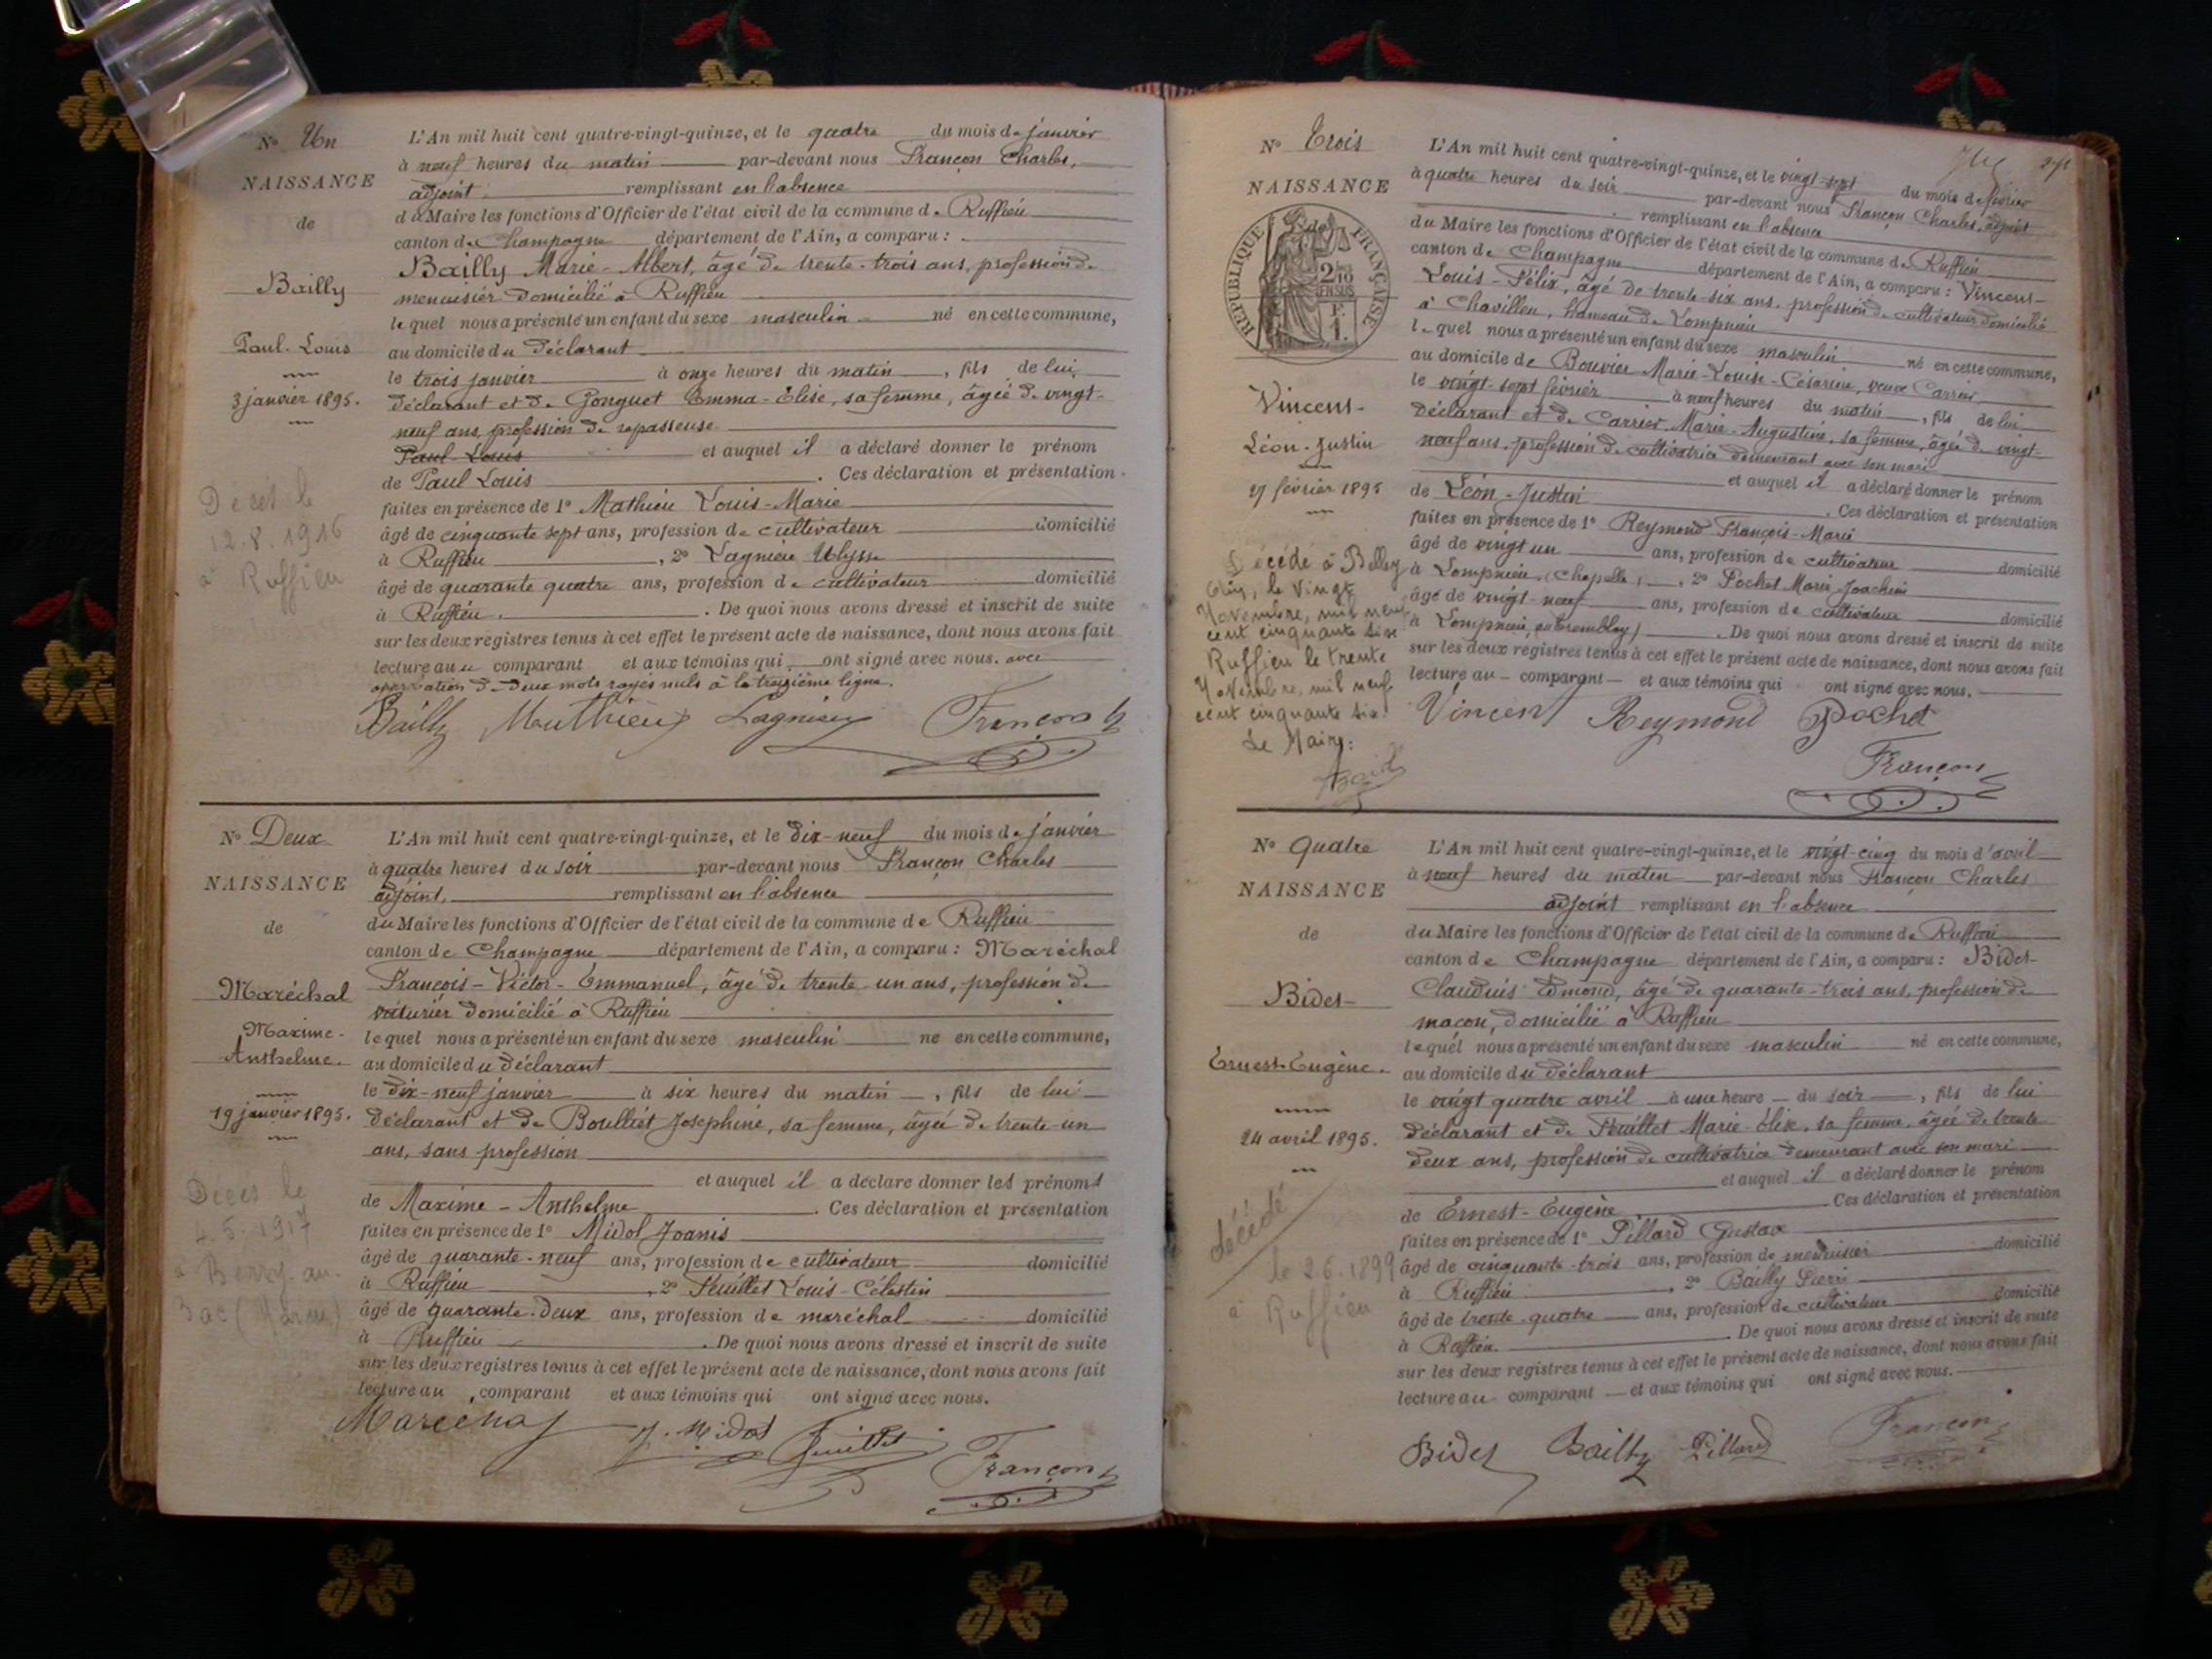 N° Un
NAISSANCE
de
Bailly
Paul-Louis
3 janvier 1895.
Décès le
12.8.1916
à Ruffieu
L'An mil huit cent quatre-vingt-quinze, et le quatre du mois de janvier
à neuf heures du matin par-devant nous Françon Charles,
adjoint remplissant en l'absence
du Maire les fonctions d'Officier de l'état civil de la commune de Ruffieu
canton de Champagne département de l'Ain, a comparu :
Bailly Marie-Albert, âgé de trente-trois ans, profession de
menuisier domicilié à Ruffieu
lequel nous a présenté un enfant du sexe masculin né en cette commune,
au domicile du déclarant
le trois janvier à onze heures du matin, fils de lui
déclarant et de Gonguet Emma-Élise, sa femme, âgée de vingt-
neuf ans, profession de repasseuse
Paul Louis et auquel il a déclaré donner le prénom
de Paul Louis. Ces déclaration et présentation
faites en présence de 1° Mathieu Louis-Marie
âgé de cinquante sept ans, profession de cultivateur domicilié
à Ruffieu, 2° Lagnieu Ulysse
âgé de quarante quatre ans, profession de cultivateur domicilié
à Ruffieu. De quoi nous avons dressé et inscrit de suite
sur les deux registres tenus à cet effet le présent acte de naissance, dont nous avons fait
lecture au comparant et aux témoins qui ont signé avec nous. avec
approbation de deux mots rayés nuls à la treizième ligne.
Bailly Mathieu Lagnieu Françon
N° Deux
NAISSANCE
de
Maréchal
Maxime-
Anthelme.
19 janvier 1895.
Décès le
4.5.1917
à Berry-au-
Bac (Marne)
L'An mil huit cent quatre-vingt-quinze, et le dix-neuf du mois de janvier
à quatre heures du soir par-devant nous Françon Charles
adjoint, remplissant en l'absence
du Maire les fonctions d'Officier de l'état civil de la commune de Ruffieu
canton de Champagne département de l'Ain, a comparu : Maréchal
François-Victor-Emmanuel, âgé de trente-un ans, profession de
voiturier domicilié à Ruffieu
lequel nous a présenté un enfant du sexe masculin né en cette commune,
au domicile du déclarant
le dix-neuf janvier à six heures du matin, fils de lui
déclarant et de Boulliet Joséphine, sa femme, âgée de trente un
ans, sans profession
et auquel il a déclaré donner les prénoms
de Maxime-Anthelme. Ces déclaration et présentation
faites en présence de 1° Midol Joanis
âgé de quarante-neuf ans, profession de cultivateur domicilié
à Ruffieu, 2° Feuillet Louis-Célestin
âgé de quarante-deux ans, profession de maréchal domicilié
à Ruffieu. De quoi nous avons dressé et inscrit de suite
sur les deux registres tenus à cet effet le présent acte de naissance, dont nous avons fait
lecture au comparant et aux témoins qui ont signé avec nous.
Maréchal J. Midol Feuillet Françon
N° Trois
NAISSANCE
de
RÉPUBLIQUE FRANÇAISE
2/10 EN SUS
F. 1.
Vincent
Léon-Justin
27 février 1895
Décédé à Belley
Ain, le vingt
Novembre, mil neuf
cent cinquante six.
Ruffieu le trente
Novembre, mil neuf
cent cinquante six.
Le Maire:
L'An mil huit cent quatre-vingt-quinze, et le vingt-sept du mois de février
à quatre heures du soir par-devant nous Françon Charles, adjoint
remplissant en l'absence
du Maire les fonctions d'Officier de l'état civil de la commune de Ruffieu
canton de Champagne département de l'Ain, a comparu : Vincent
Louis-Félix, âgé de trente-six ans, profession de cultivateur domicilié
à Chavillieu, hameau de Lompnieu
lequel nous a présenté un enfant du sexe masculin né en cette commune,
au domicile de Bouvier Marie-Louise-Césarine, veuve Carrier
le vingt-sept février à neuf heures du matin, fils de lui
déclarant et de Carrier Marie-Augustine, sa femme, âgée de vingt-
neuf ans, profession de cultivatrice demeurant avec son mari
et auquel il a déclaré donner le prénom
de Léon-Justin. Ces déclaration et présentation
faites en présence de 1° Reymond François-Marie
âgé de vingt un ans, profession de cultivateur domicilié
à Lompnieu, (Chapelle), 2° Pochet Marie Joachim
âgé de vingt-neuf ans, profession de cultivateur domicilié
à Lompnieu, (au tremblay). De quoi nous avons dressé et inscrit de suite
sur les deux registres tenus à cet effet le présent acte de naissance, dont nous avons fait
lecture au comparant et aux témoins qui ont signé avec nous.
Vincent Reymond Pochet
Françon
N° Quatre
NAISSANCE
de
Bidet
Ernest-Eugène.
24 avril 1895.
décédé
le 2.6.1899
à Ruffieu
L'An mil huit cent quatre-vingt-quinze, et le vingt-cinq du mois d'avril
à neuf heures du matin par-devant nous Françon Charles
adjoint remplissant en l'absence
du Maire les fonctions d'Officier de l'état civil de la commune de Ruffieu
canton de Champagne département de l'Ain, a comparu : Bidet
Claudius Edmond, âgé de quarante-trois ans, profession de
maçon, domicilié à Ruffieu
lequel nous a présenté un enfant du sexe masculin né en cette commune,
au domicile du déclarant
le vingt quatre avril à une heure du soir, fils de lui
déclarant et de Feuillet Marie-Élise, sa femme, âgée de trente
deux ans, profession de cultivatrice demeurant avec son mari
et auquel il a déclaré donner le prénom
de Ernest-Eugène. Ces déclaration et présentation
faites en présence de 1° Pillard Gustave
âgé de cinquante-trois ans, profession de menuisier domicilié
à Ruffieu, 2° Bailly Pierre
âgé de trente-quatre ans, profession de cultivateur domicilié
à Ruffieu. De quoi nous avons dressé et inscrit de suite
sur les deux registres tenus à cet effet le présent acte de naissance, dont nous avons fait
lecture au comparant et aux témoins qui ont signé avec nous.
Bidet Bailly Pillard Françon